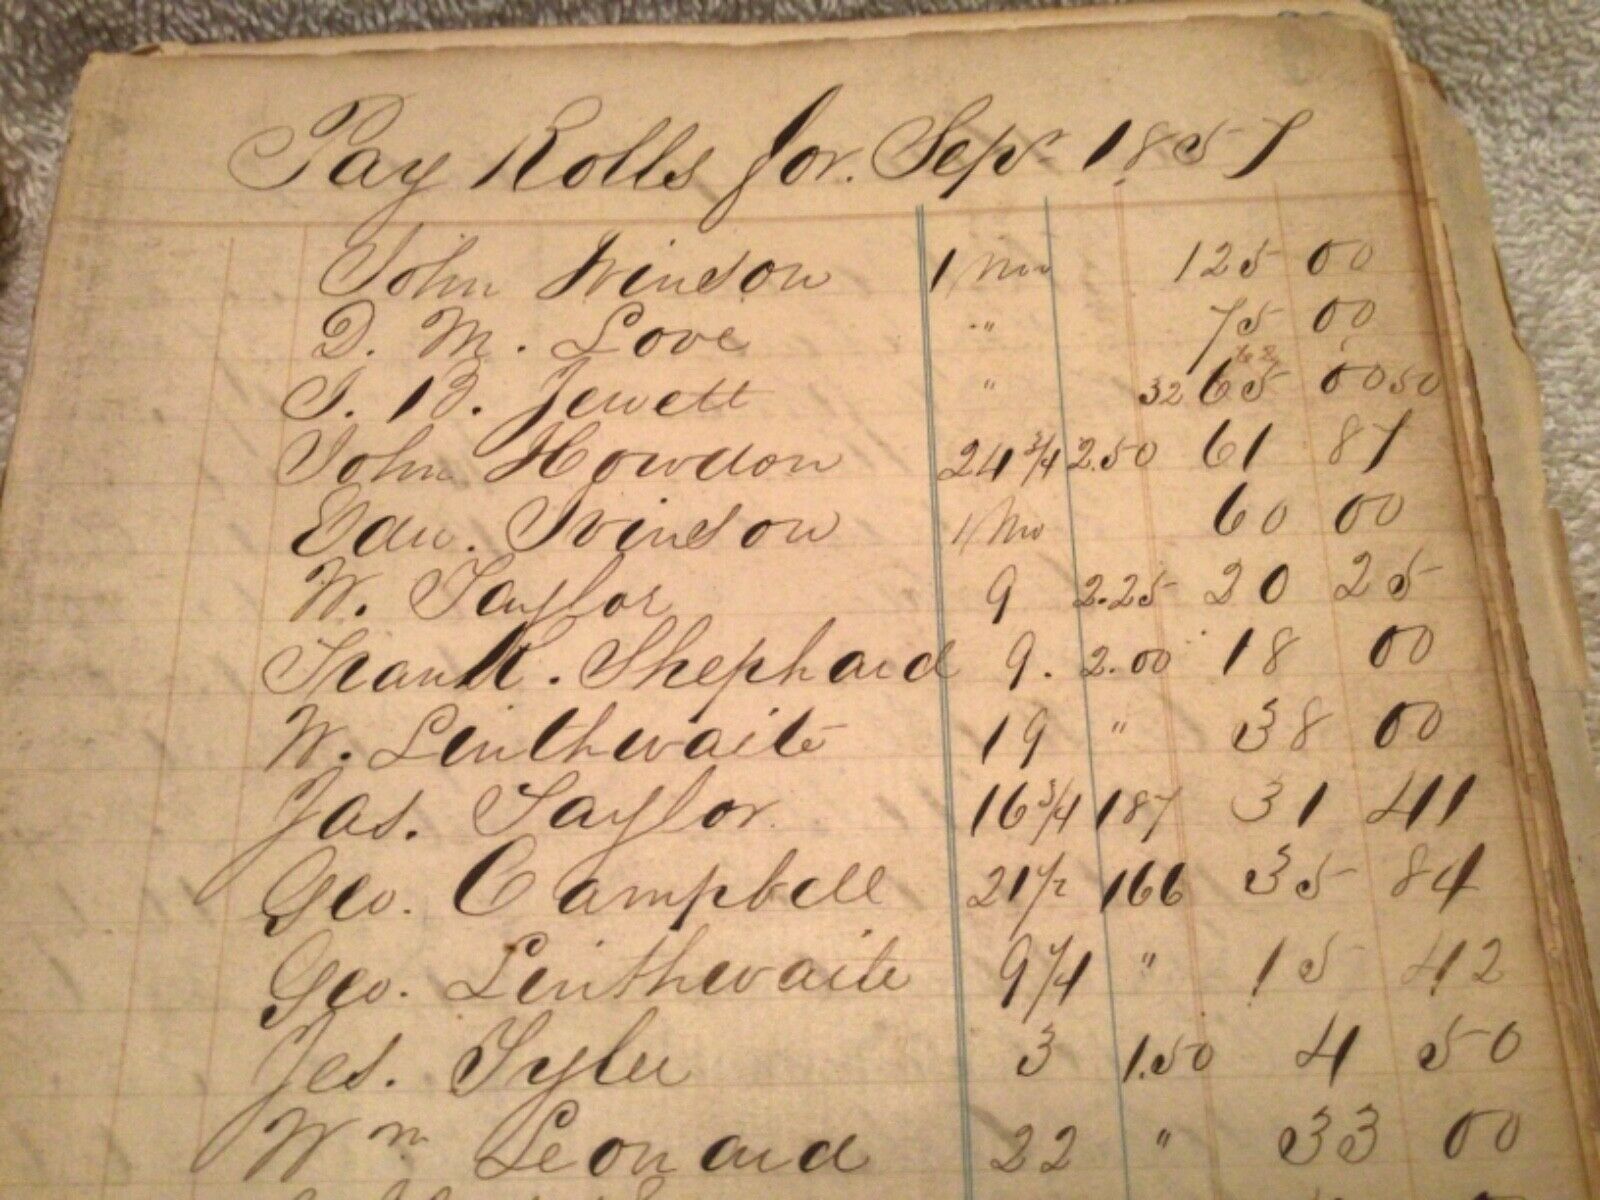 Pay Rolls for. Sept 1857
John Vinson 1 Mo 125 00
D. M. Love " 75 00
J. B. Jewett " 32 65 00 50
John Howdon 24 3/4 2.50 61 87
Edw. Vinson 1 Mo 60 00
W. Taylor 9 2.25 20 25
Frank. Shephard 9. 2.00 18 00
W. Linthwaite 19 " 38 00
Jas. Taylor. 16 3/4 187 31 41
Geo. Campbell 21 1/2 166 35 84
Geo. Linthwaite 9 1/4 " 15 42
Jes. Tyler 3 1.50 4 50
Wm Leonard 22 " 33 00